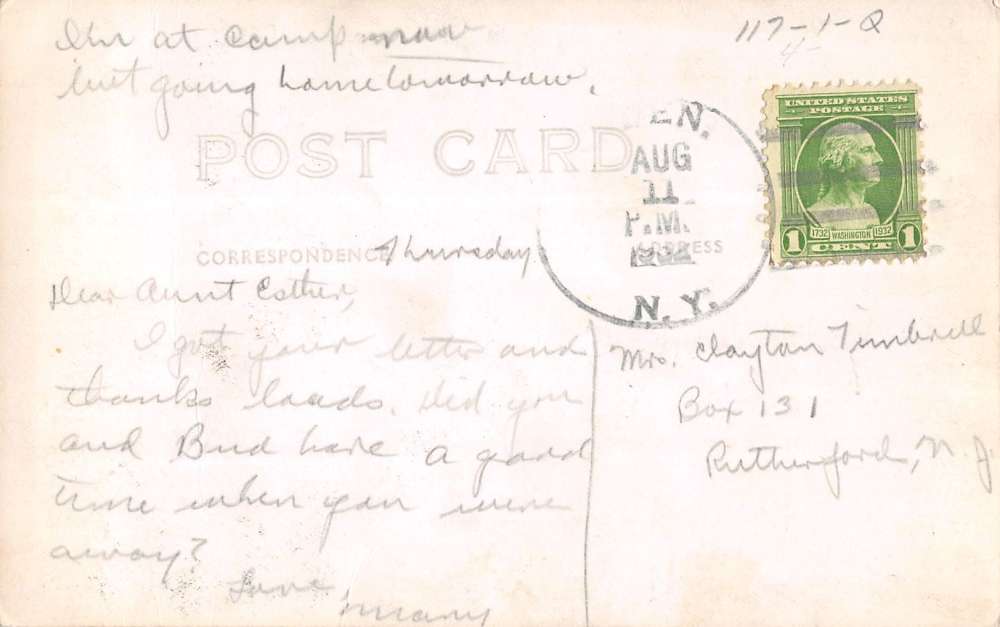 I'm at camp now
but going home tomorrow.
117-1-Q
4-
POST CARD
EN.
AUG
11
P.M.
1932
N.Y.
UNITED STATES
POSTAGE
1732 WASHINGTON 1932
1 CENT 1
CORRESPONDENCE
ADDRESS
Thursday
Dear Aunt Esther,
I got your letter and
thanks loads. Did you
and Bud have a good
time when you were
away?
Love,
Mary
Mrs. Clayton Timbrell
Box 131
Rutherford, N.J.